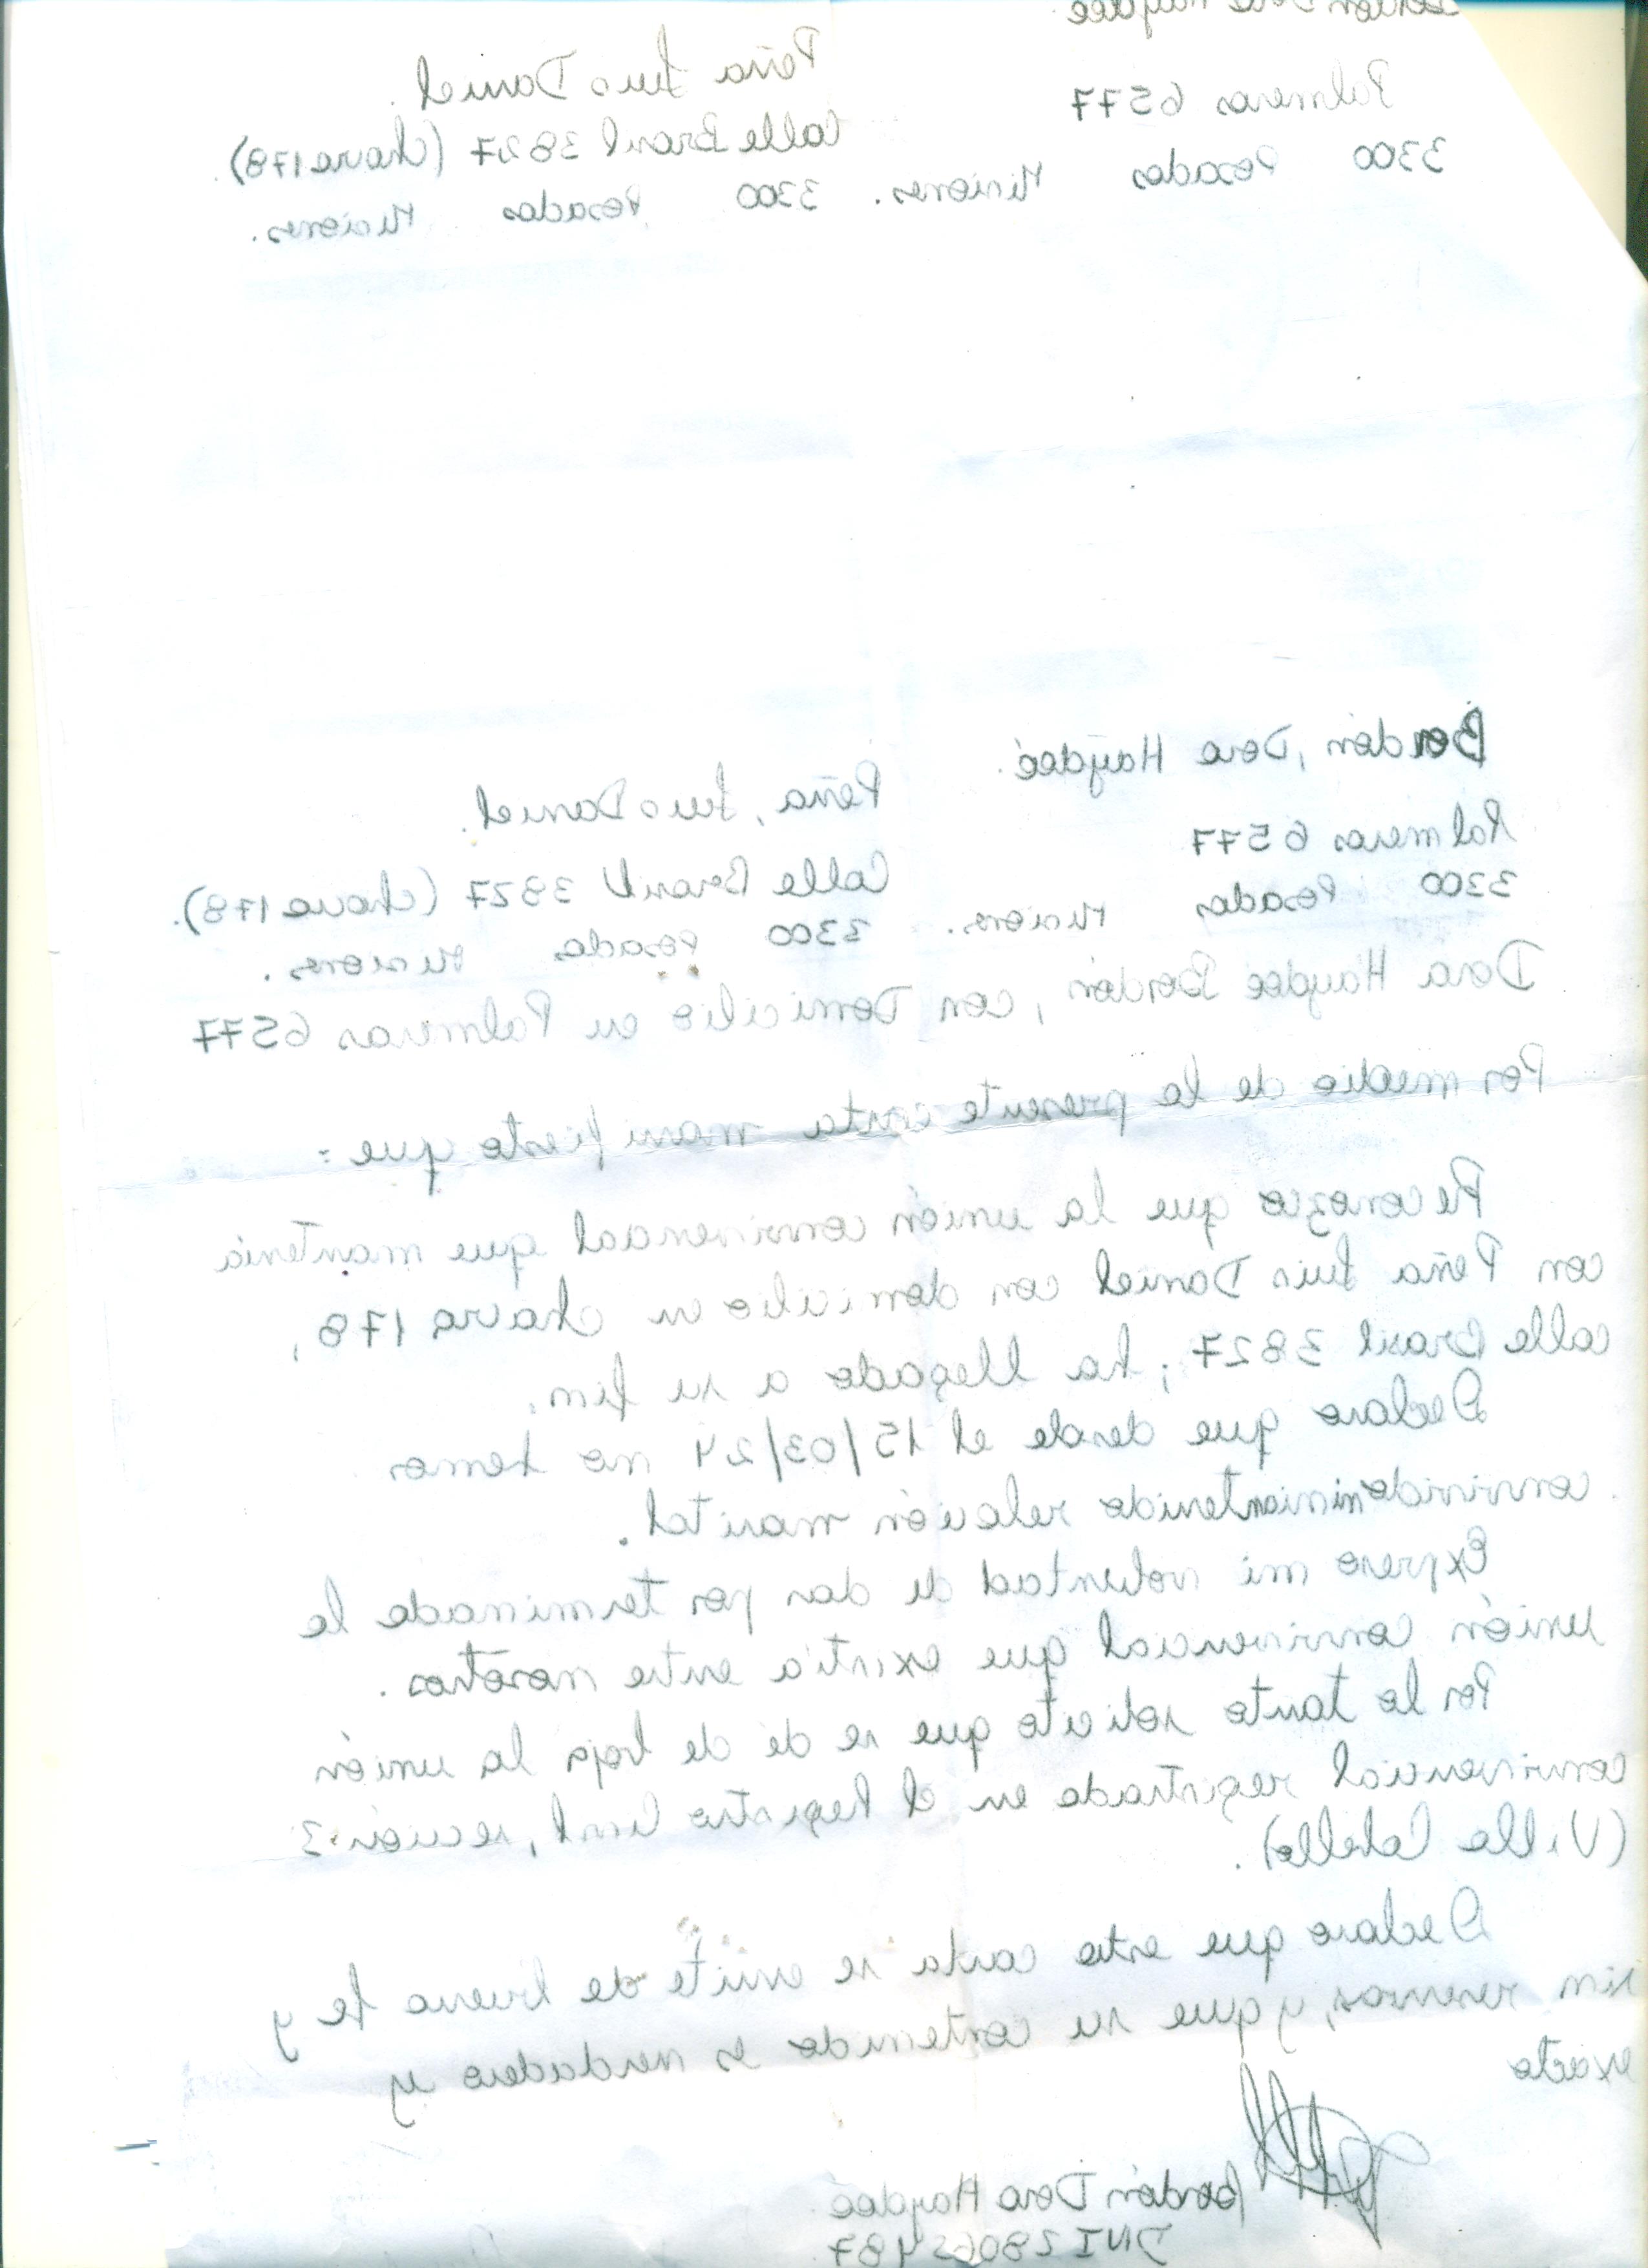 Bordón Dora Haydeé.
Peña Luis Daniel.
Palmeras 6577
Calle Brasil 3827 (chacra 178).
3300 Posadas Misiones.
3300 Posadas Misiones.
Bordón, Dora Haydeé.
Peña, Luis Daniel.
Palmeras 6577
Calle Brasil 3827 (chacra 178).
3300 Posadas Misiones.
3300 Posadas Misiones.
Dora Haydeé Bordón, con Domicilio en Palmeras 6577
Por medio de la presente carta manifiesto que:
Reconozco que la unión convivencial que mantenía
con Peña Luis Daniel con domicilio en chacra 178,
calle Brasil 3827; ha llegado a su fin.
Declaro que desde el 15/03/24 no hemos
convivido ni mantenido relación marital.
Expreso mi voluntad de dar por terminada la
unión convivencial que existía entre nosotros.
Por lo tanto solicito que se dé de baja la unión
convivencial registrada en el Registro Civil, sección 3
(Villa Cabello).
Declaro que esta carta se emite de buena fe y
sin reservas, y que su contenido es verdadero y
exacto
Bordón Dora Haydeé
DNI 28065487